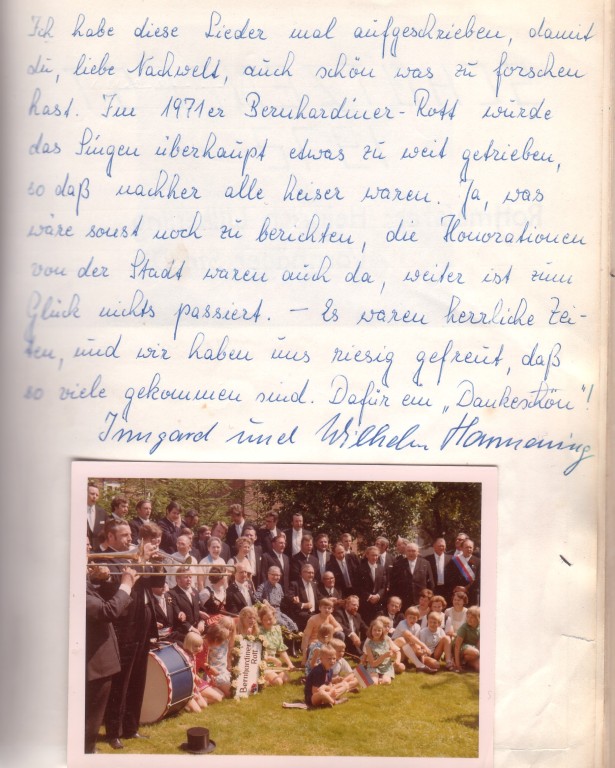 Ich habe diese Lieder mal aufgeschrieben, damit
du, liebe Nachwelt, auch schön was zu forschen
hast. Im 1971er Bernhardiner-Rott wurde
das Singen überhaupt etwas zu weit getrieben,
so daß nachher alle heiser waren. Ja, was
wäre sonst noch zu berichten, die Honorationen
von der Stadt waren auch da, weiter ist zum
Glück nichts passiert. – Es waren herrliche Zei-
ten, und wir haben uns riesig gefreut, daß
so viele gekommen sind. Dafür ein „Dankeschön"!
Irmgard und Wilhelm Hannening
Bernhardiner
Rott